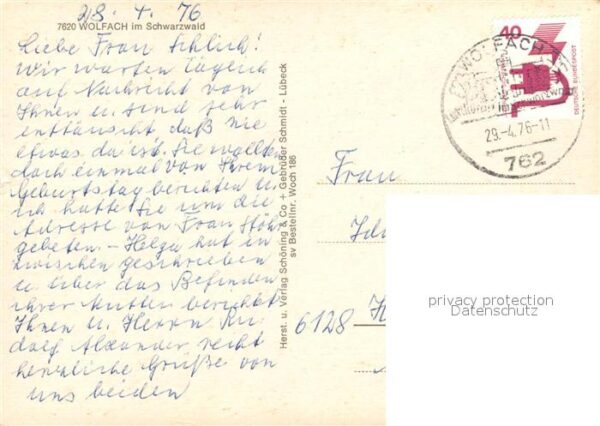 28. 4. 76
7620 WOLFACH im Schwarzwald
Liebe Frau Schlich!
Wir warten täglich
auf Nachricht von
Ihnen u. sind sehr
enttäuscht daß nie
etwas da ist. Sie wollten
doch einmal von Ihrem
Geburtstag berichten u.
ich hatte Sie um die
Adresse von Frau Stöhr
gebeten. - Helga hat in
zwischen geschrieben
u. über das Befinden
ihrer Mutter berichtet
Ihnen u. Herrn Ru
dolf Alexander recht
herzliche Grüße von
uns beiden
Herst. u. Verlag Schöning & Co + Gebrüder Schmidt - Lübeck
sv Bestellnr. Woch 186
40
DEUTSCHE BUNDESPOST
WOLFACH
29.-4.76-11
762
Frau
6128
privacy protection
Datenschutz